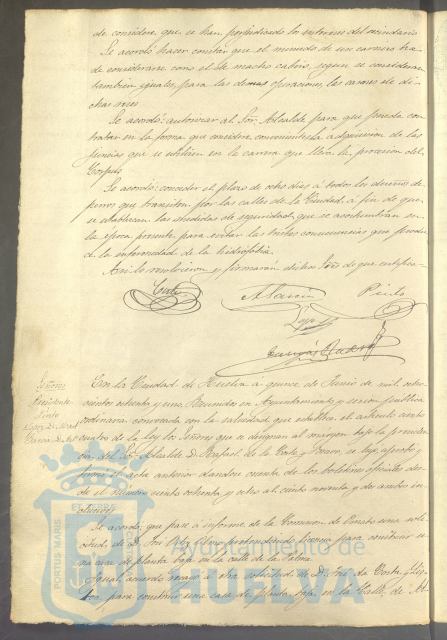 de considere que se han perjudicado los intereses del vecindario
Se acordó hacer constar que el menudo de un carnero ha
de considerarse como el de macho cabrio, segun se consideran
tambien iguales, para las demas operaciones, las carnes de di-
chas reses
Se acordó: autorizar al Sor. Alcalde para que pueda con-
tratar en la forma que considere conveniente la adquisicion de las
juncias que se utilicen en la carrera que lleva la procesion del
Corpus
Se acordó: conceder el plazo de ocho dias á todos los dueños de
perros que transiten por las calles de la Ciudad á fin de que
se establezcan las medidas de seguridad que se acostumbran en
la época presente para evitar las tristes consecuencias que produ-
ce la enfermedad de la hidrofobia
Asi lo resolvieron y firmarán dichos Sres de que certifico
A Garcia Pinto
Señores
Presidente
Pinto
En la Ciudad de Huelva á quince de Junio de mil ocho-
cientos ochenta y uno Reunidos en Ayuntamiento y sesion publica
ordinaria convocada con la salvedad que establece el articulo ciento
cuatro de la ley los Señores que se designan al margen bajo la presiden-
cia del Sor. Alcalde D. Rafael de la Corte y se leyó, aprobó y
firmó el acta anterior dandose cuenta de los boletines oficiales des-
de el número ciento ochenta y ocho al ciento noventa y dos ambos in-
clusives
Se acordó que pase á informe de la Comision de Ornato una soli-
citud de D. José pretendiendo licencia para construir u-
na casa de planta baja en la calle de la Palma.
Igual acuerdo recayó á otra solicitud de D. José de Corta y
para construir una casa de planta baja en la Calle de
PORTUS MARIS
Ayuntamiento de
HUELVA